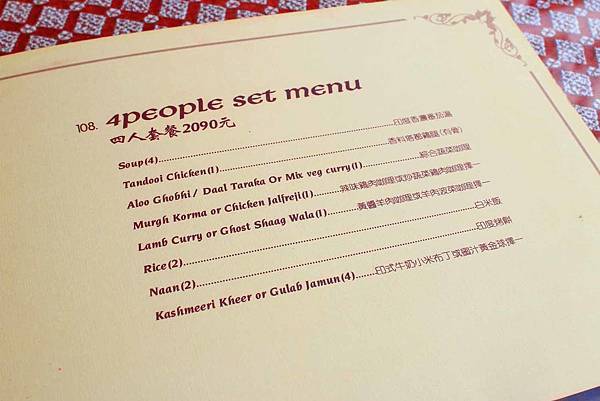 108. 4people set menu
四人套餐2090元
Soup(4)........印度香濃蕃茄湯
Tandooi Chicken(1)........香料塔都雞腿(有骨)
Aloo Ghobhi / Daal Taraka Or Mix veg curry(1)........綜合蔬菜咖哩
Murgh Korma or Chicken Jalfreji(1)........辣味雞肉咖哩或炒蔬菜雞肉咖哩擇一
Lamb Curry or Ghost Shaag Wala(1)........黃醬羊肉咖哩或羊肉菠菜咖哩擇一
Rice(2)........白米飯
Naan(2)........印度烤餅
Kashmeeri Kheer or Gulab Jamun(4)........印式牛奶小米布丁或蜜汁黃金球擇一